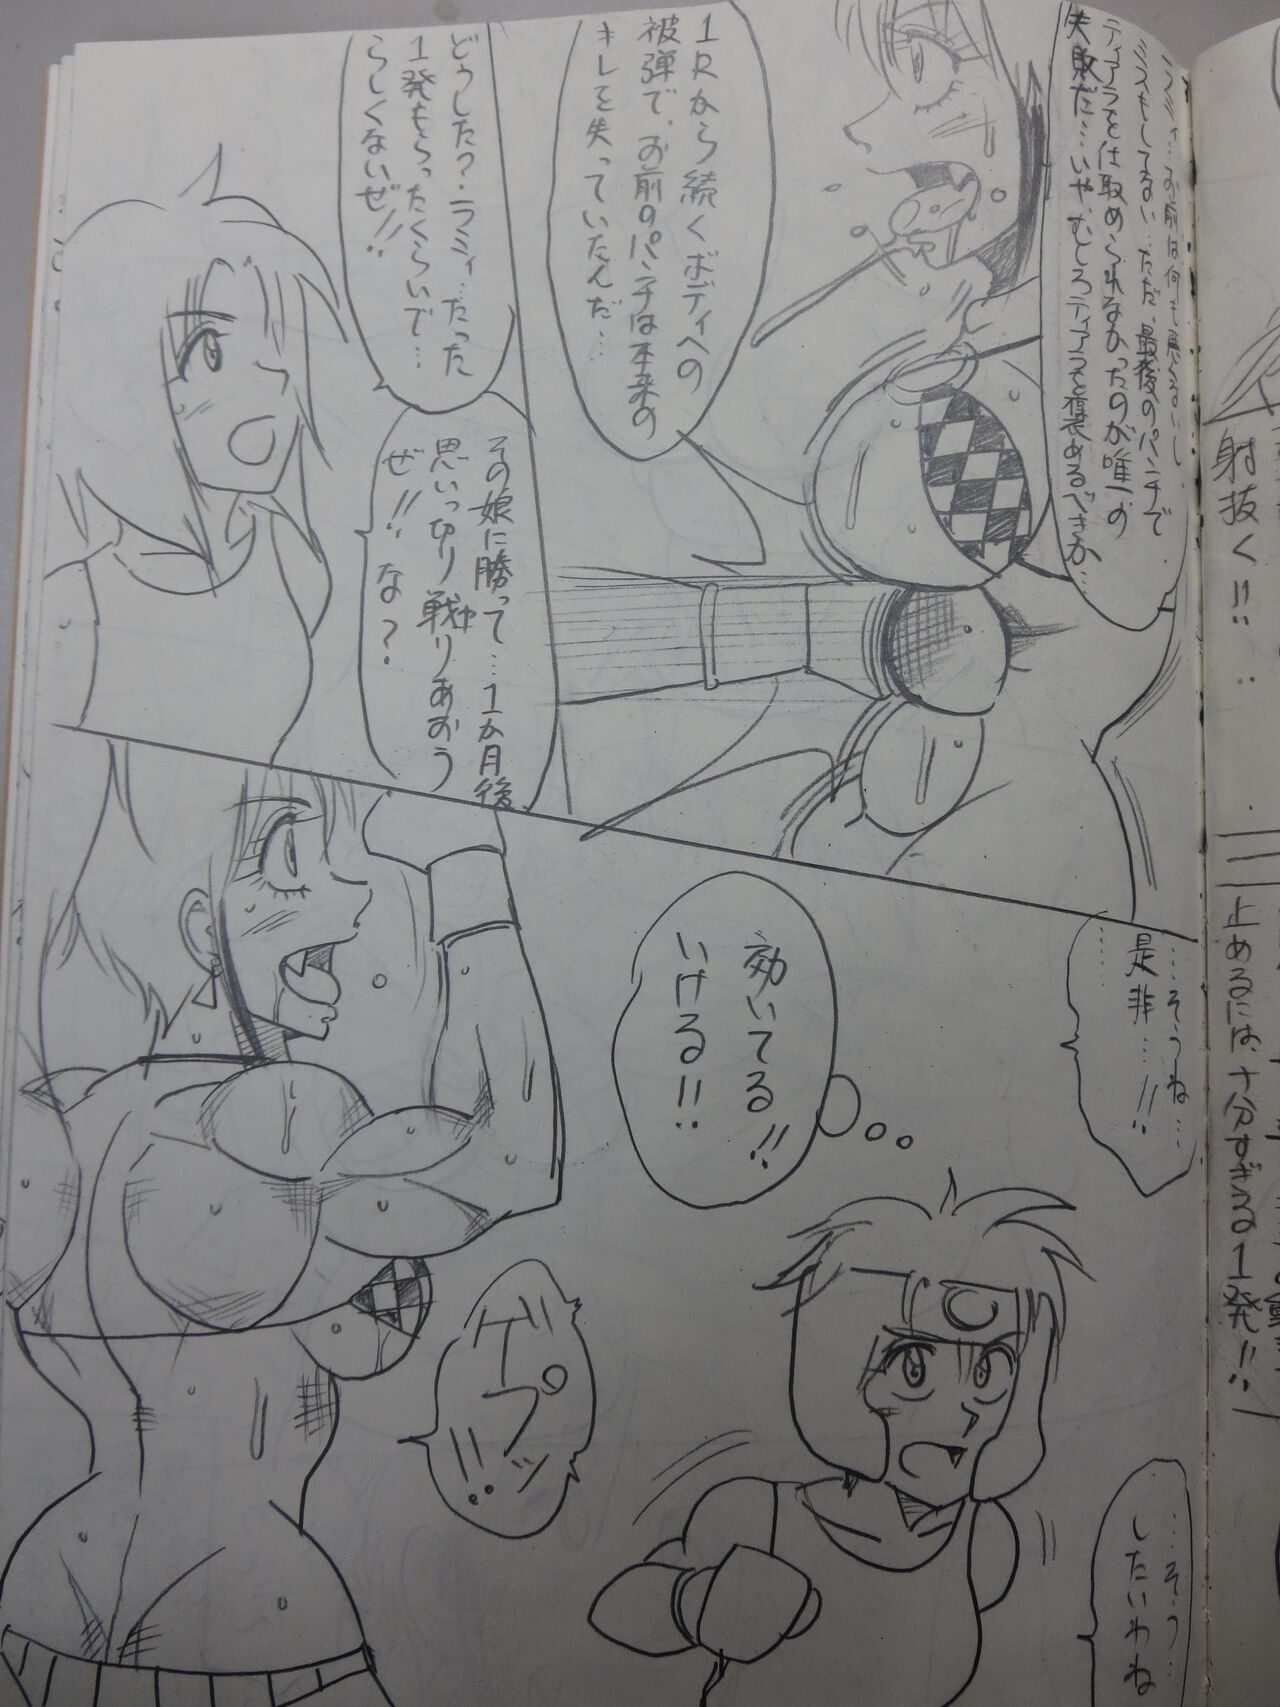 ラミィ…お前は何も悪くないし、
ミスもしてない…ただ、最後のパンチで
ティアラを仕留められなかったのが唯一の
失敗だ…いや、むしろティアラを褒めるべきか…
1Rから続くボディへの
被弾で、お前のパンチは本来の
キレを失っていたんだ…
どうした?ラミィ…たった
1発もらったくらいで…
らしくないぜ!!
その娘に勝って…1か月後
思いっ切り戦りあおう
ぜ!!な?
……そうね…
……是非…!!
効いてる!!
いける!!
ゲプッ!!
……そう…
したいわね
射抜く!!
止めるには、十分すぎる1発!!